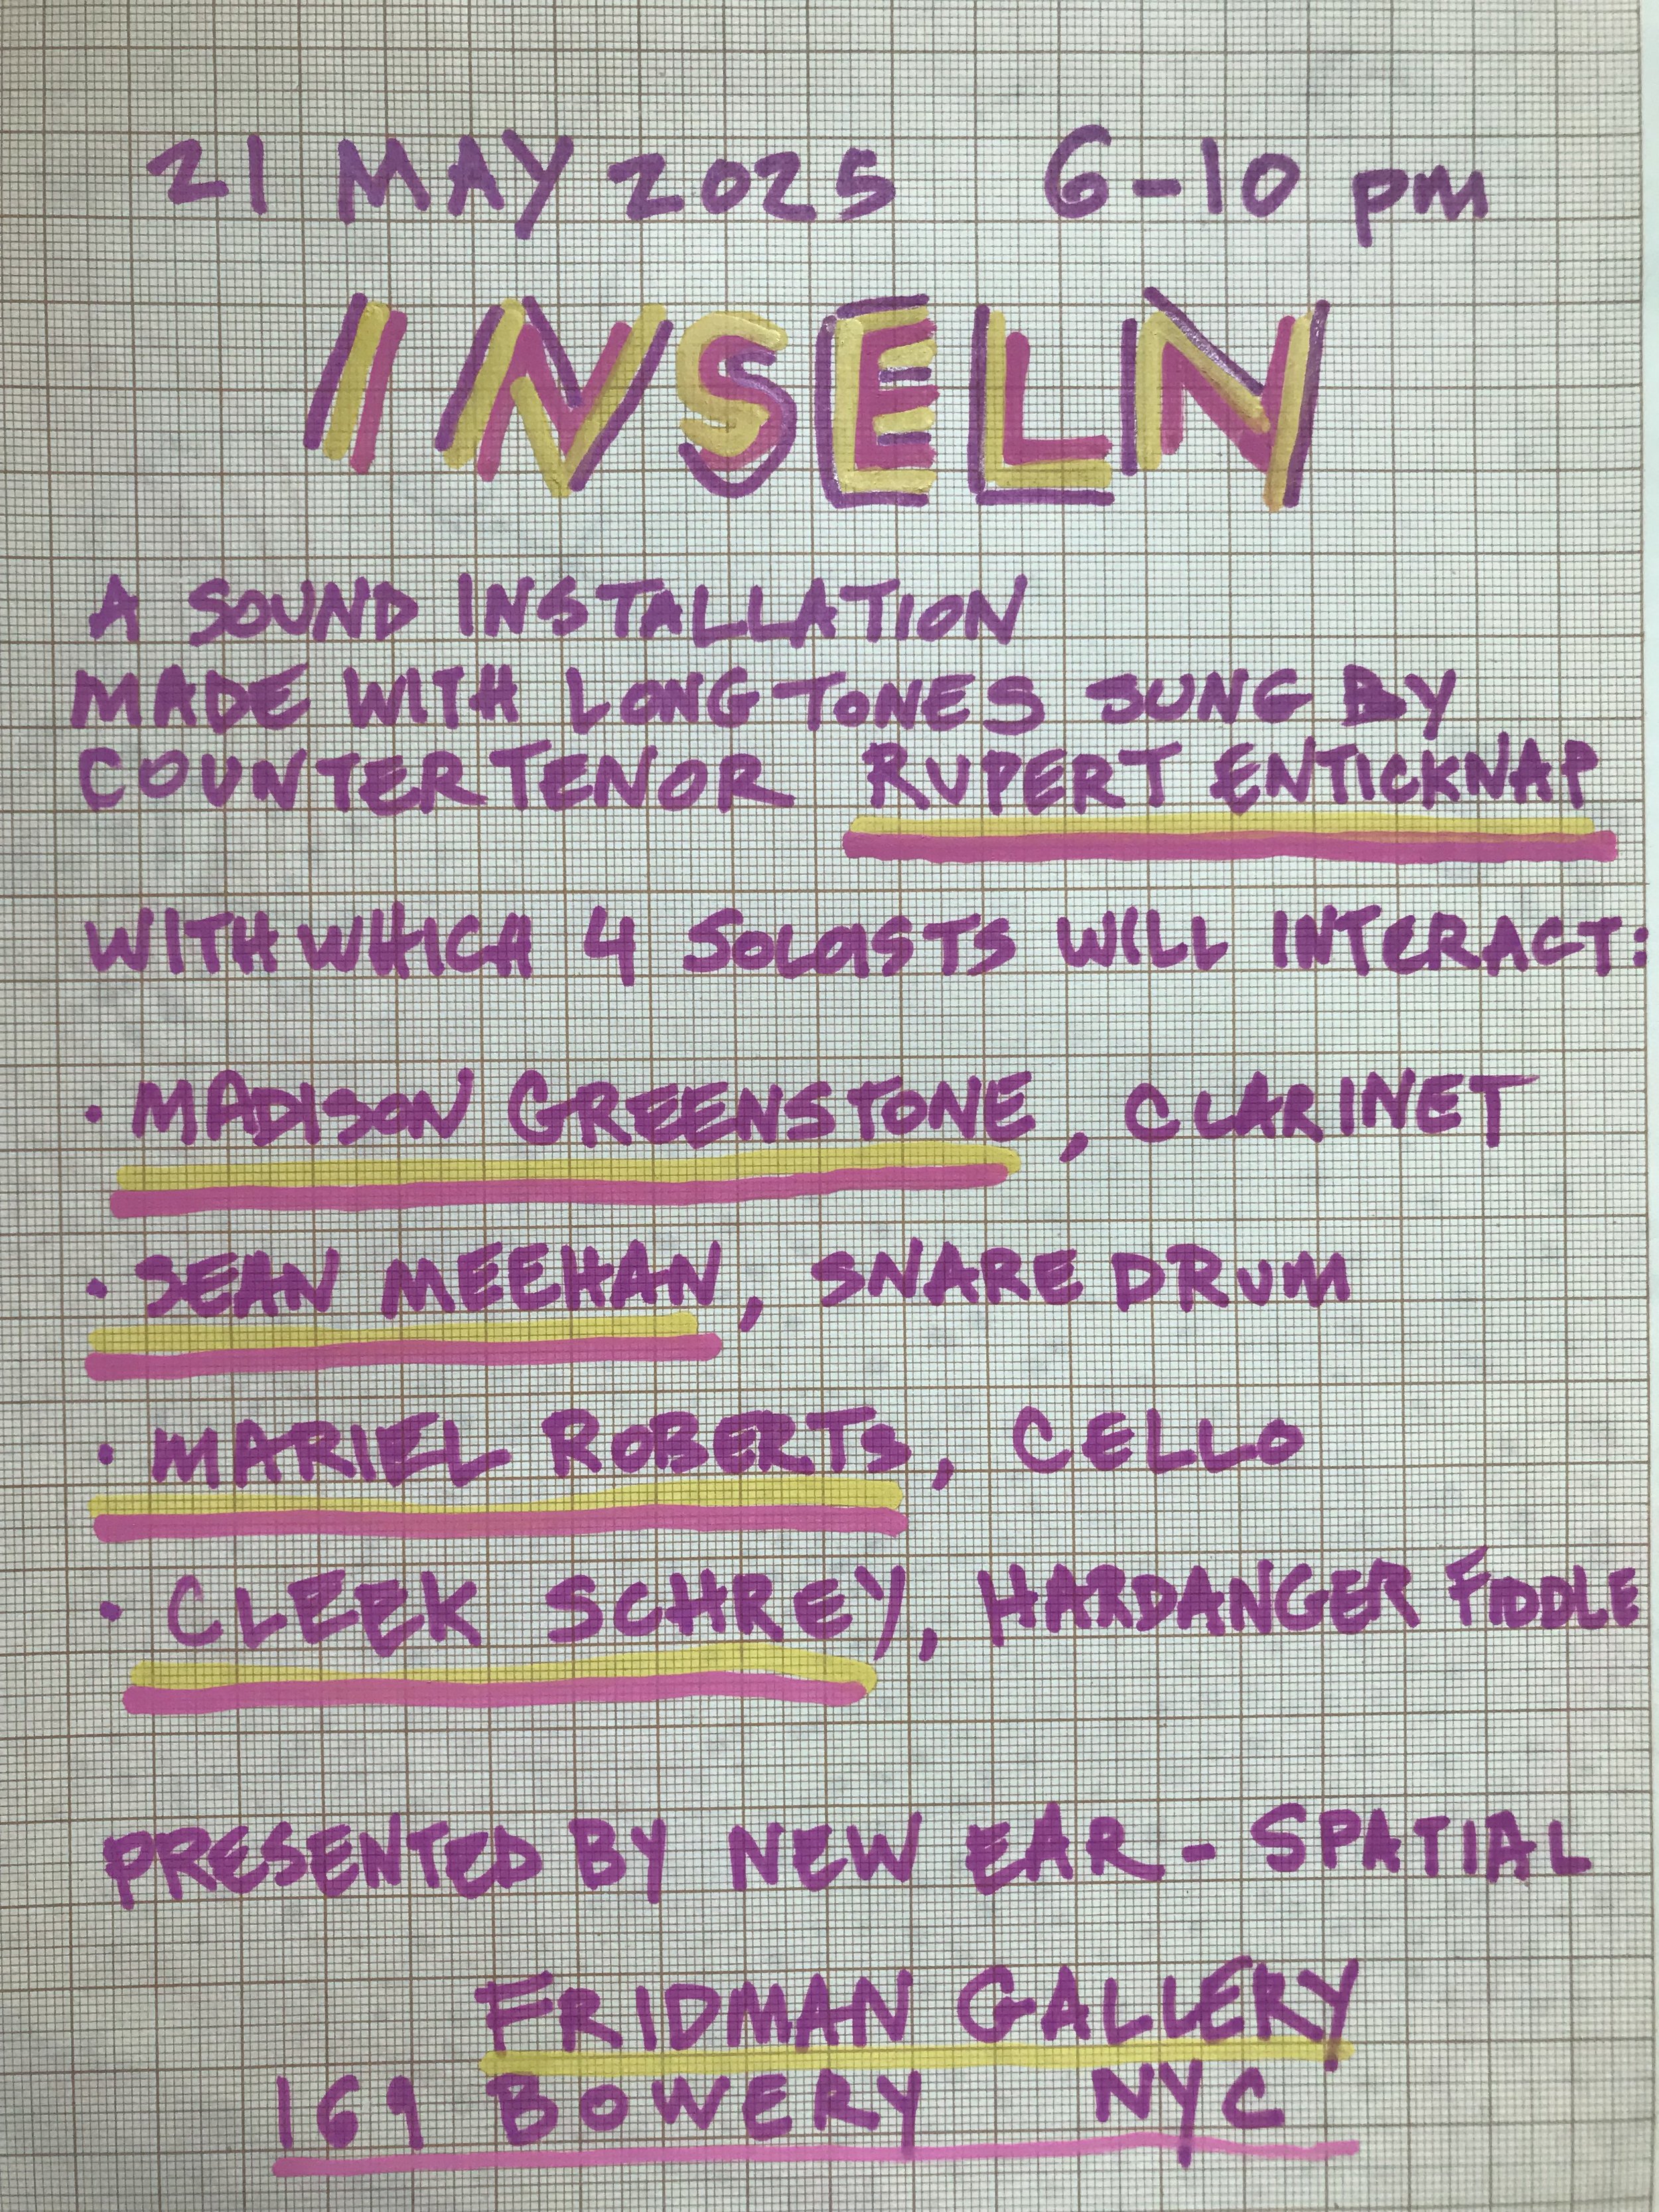 21 MAY 2025 6-10 pm
INSELN
A SOUND INSTALLATION
MADE WITH LONG TONES SUNG BY
COUNTERTENOR RUPERT ENTICKNAP
WITH WHICH 4 SOLOISTS WILL INTERACT:
• MADISON GREENSTONE, CLARINET
• SEAN MEEHAN, SNARE DRUM
• MARIEL ROBERTS, CELLO
• CLEEK SCHREY, HARDANGER FIDDLE
PRESENTED BY NEW EAR - SPATIAL
FRIDMAN GALLERY
169 BOWERY NYC